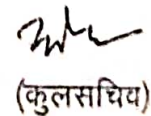 (कुलसचिव)